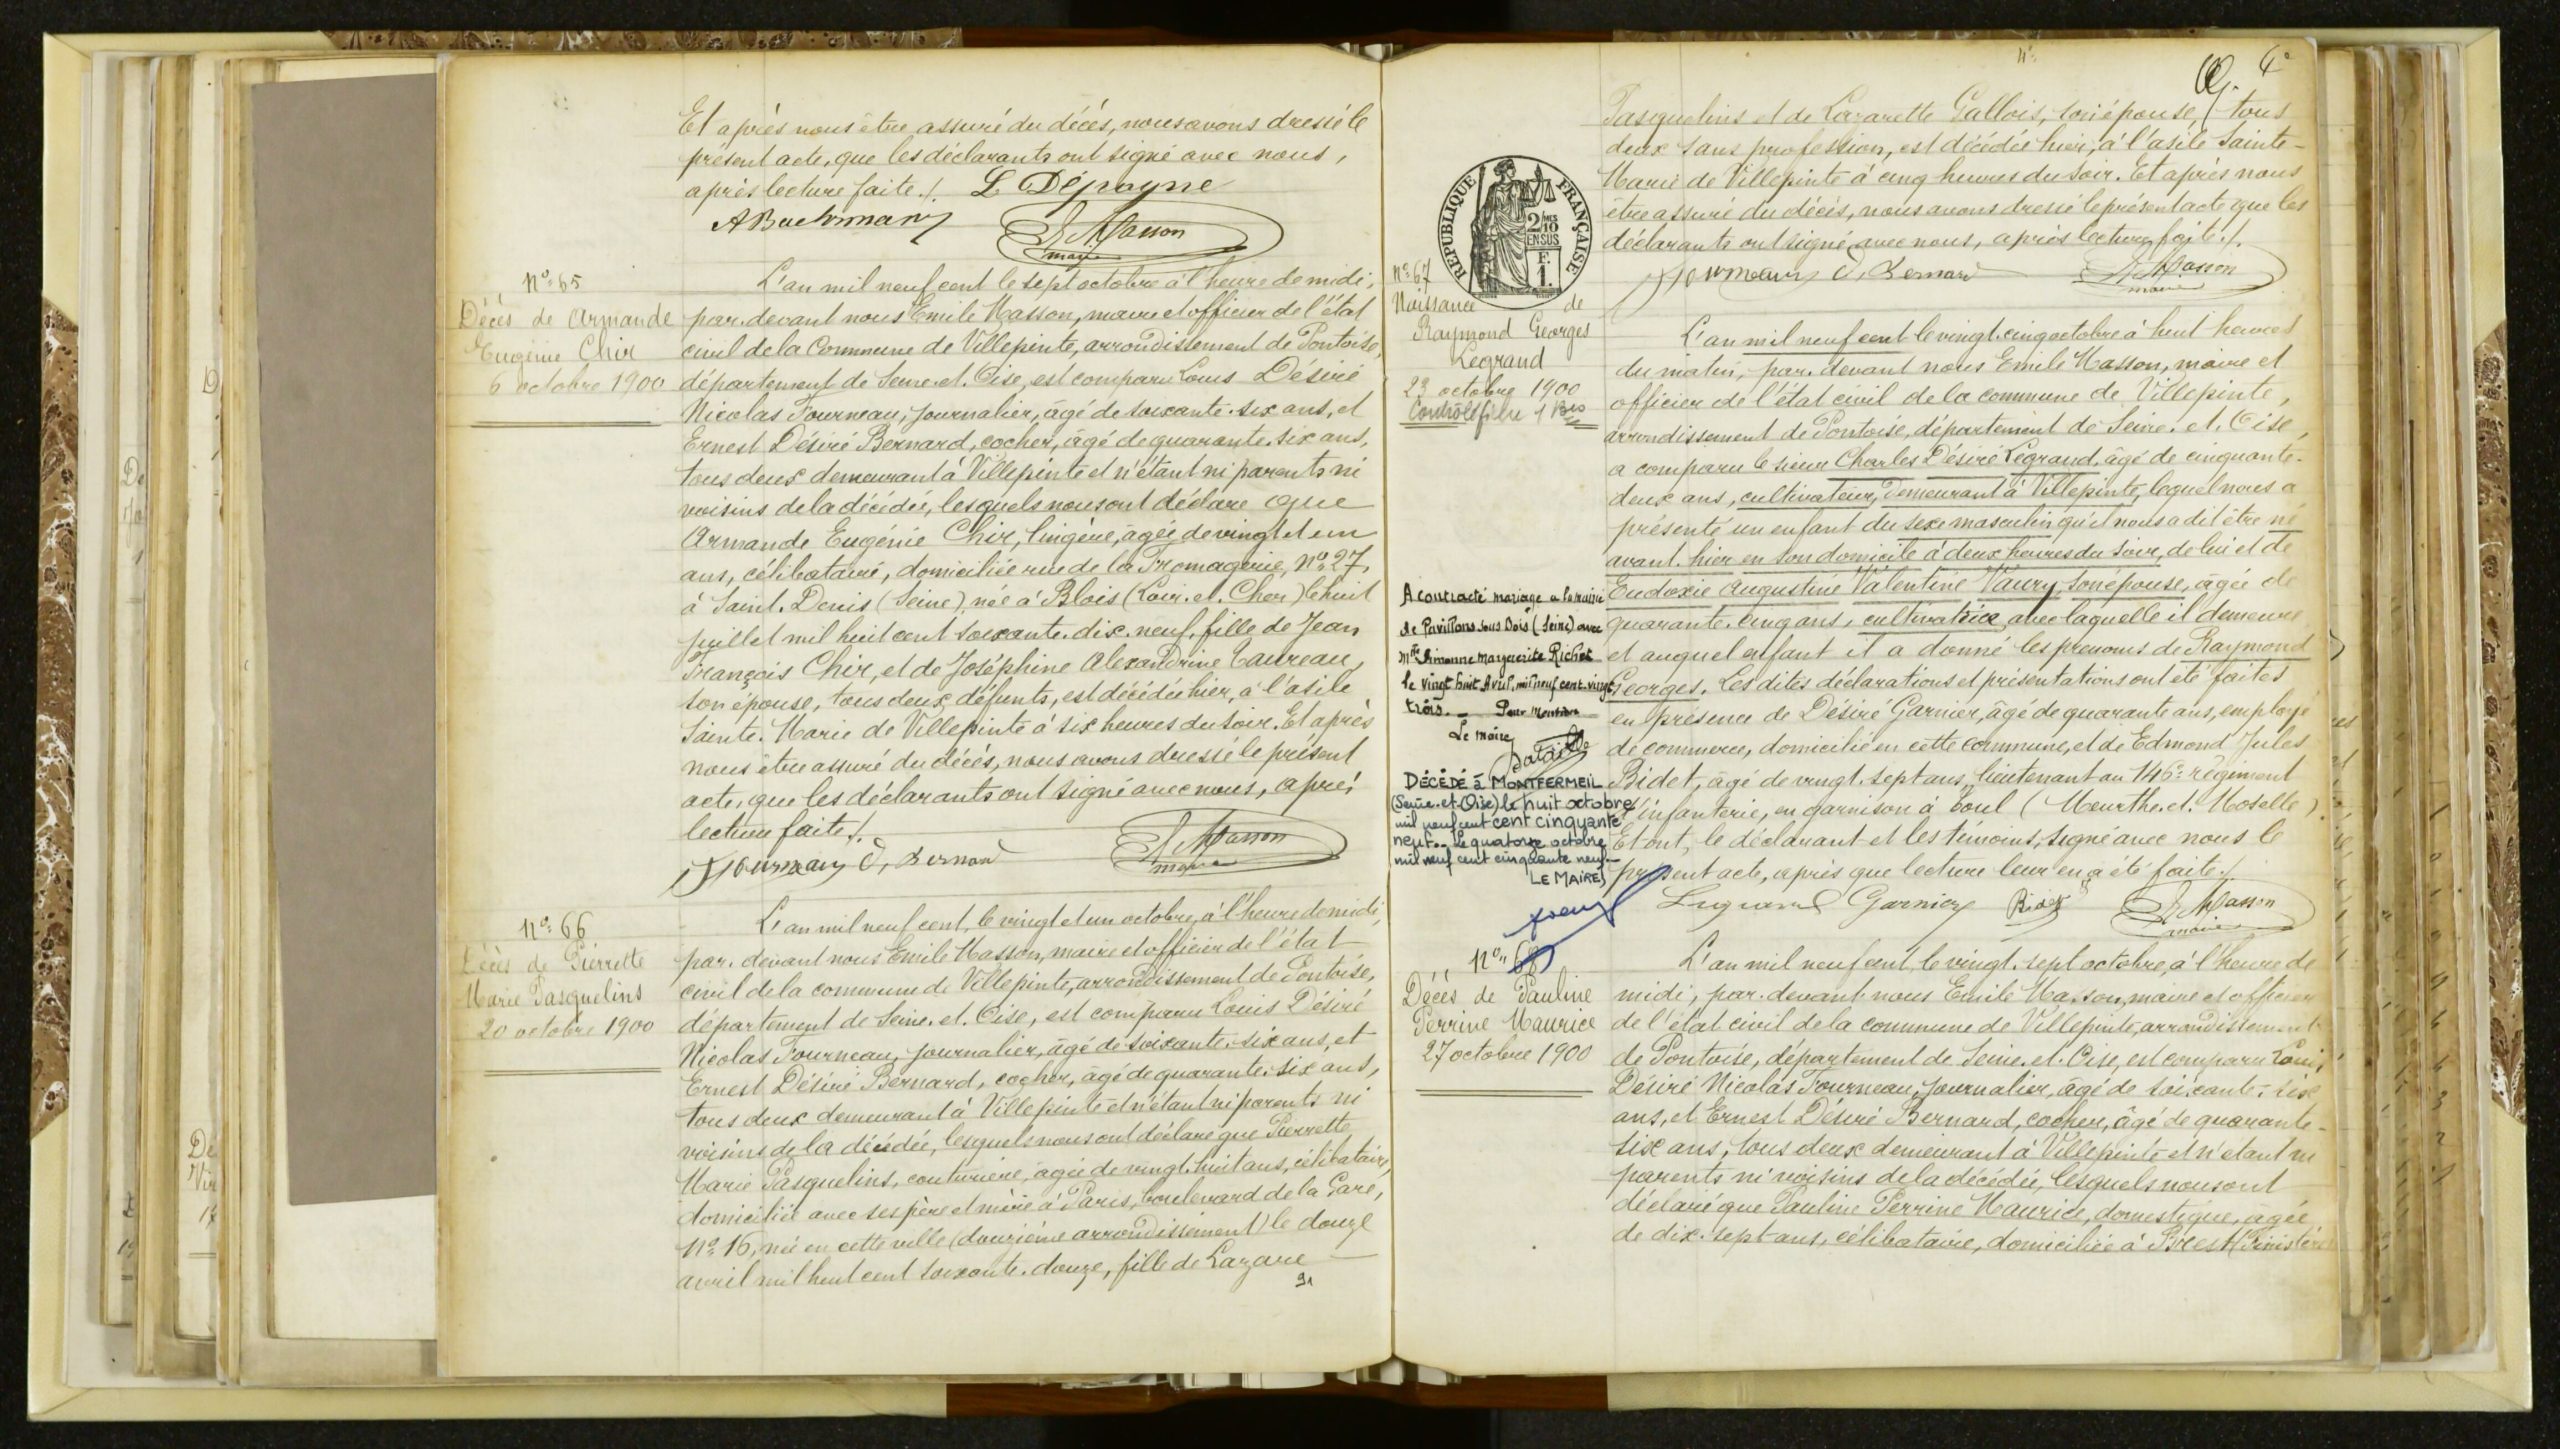 Et après nous être assuré du décès, nous avons dressé le
présent acte, que les déclarants ont signé avec nous,
après lecture faite ./. L Dépoyne
A Bachmann
E. Masson
maire
N° 65
Décès de Armande
Eugénie Chir
6 octobre 1900
L'an mil neuf cent le sept octobre à l'heure de midi,
par devant nous Emile Masson, maire et officier de l'état
civil de la Commune de Villepinte, arrondissement de Pontoise,
département de Seine et Oise, est comparu Louis Désiré
Nicolas Fourneau, journalier, âgé de soixante-six ans, et
Ernest Désiré Bernard, cocher, âgé de quarante-six ans,
tous deux demeurant à Villepinte et n'étant ni parents ni
voisins de la décédée, lesquels nous ont déclaré que
Armande Eugénie Chir, lingère, âgée de vingt et un
ans, célibataire, domiciliée rue de la Fromagerie, N° 27,
à Saint-Denis (Seine), née à Blois (Loir-et-Cher) le huit
juillet mil huit cent soixante-dix-neuf, fille de Jean
François Chir, et de Joséphine Alexandrine Taureau,
son épouse, tous deux défunts, est décédée hier, à l'asile
Sainte-Marie de Villepinte à six heures du soir. Et après
nous être assuré du décès, nous avons dressé le présent
acte, que les déclarants ont signé avec nous, après
lecture faite ./.
Fourneau E. Bernard
E. Masson
maire
N° 66
Décès de Pierrette
Marie Pasquelins
20 octobre 1900
L'an mil neuf cent, le vingt et un octobre, à l'heure de midi,
par devant nous Emile Masson, maire et officier de l'état
civil de la commune de Villepinte, arrondissement de Pontoise,
département de Seine-et-Oise, est comparu Louis Désiré
Nicolas Fourneau, journalier, âgé de soixante-six ans, et
Ernest Désiré Bernard, cocher, âgé de quarante-six ans,
tous deux demeurant à Villepinte et n'étant ni parents ni
voisins de la décédée, lesquels nous ont déclaré que Pierrette
Marie Pasquelins, couturière, âgée de vingt-huit ans, célibataire,
domiciliée avec ses père et mère à Paris, boulevard de la Gare,
N° 16, née en cette ville (douzième arrondissement) le douze
avril mil huit cent soixante-douze, fille de Lazare
Pasquelins et de Lazarette Gallois, son épouse, tous
deux sans profession, est décédée hier, à l'asile Sainte-
Marie de Villepinte à cinq heures du soir. Et après nous
être assuré du décès, nous avons dressé le présent acte que les
déclarants ont signé avec nous, après lecture faite ./.
Fourneau E. Bernard
E. Masson
maire
REPUBLIQUE FRANÇAISE
2/10 EN SUS
F. 1.
N° 67
Naissance de
Raymond Georges
Legrand
23 octobre 1900
L'an mil neuf cent le vingt-cinq octobre à huit heures
du matin, par devant nous Emile Masson, maire et
officier de l'état civil de la commune de Villepinte,
arrondissement de Pontoise, département de Seine-et-Oise,
a comparu le sieur Charles Désiré Legrand, âgé de cinquante-
deux ans, cultivateur, demeurant à Villepinte, lequel nous a
présenté un enfant du sexe masculin qu'il nous a dit être né
avant-hier en son domicile à deux heures du soir, de lui et de
Eudoxie Augustine Valentine Vaury, son épouse, âgée de
quarante-cinq ans, cultivatrice, avec laquelle il demeure
et auquel enfant il a donné les prénoms de Raymond
Georges. Les dites déclarations et présentations ont été faites
en présence de Désiré Garnier, âgé de quarante ans, employé
de commerce, domicilié en cette commune, et de Edmond Jules
Bidet, âgé de vingt-sept ans, lieutenant au 146e régiment
d'infanterie, en garnison à Toul (Meurthe-et-Moselle).
Et ont, le déclarant et les témoins, signé avec nous le
présent acte, après que lecture leur en a été faite ./.
Legrand Garnier Bidet
E. Masson
maire
A contracté mariage a la mairie
de Pavillons sous Bois (Seine) avec
Mlle Simonne Marguerite Richet
le vingt huit Avril mil neuf cent vingt
trois.
Le maire
DÉCÉDÉ à MONTFERMEIL
(Seine-et-Oise) le huit octobre
mil neuf cent cent cinquante
neuf. Le quatorze octobre
mil neuf cent cinquante neuf
LE MAIRE,
N° 68
Décès de Pauline
Perrine Maurice
27 octobre 1900
L'an mil neuf cent, le vingt-sept octobre, à l'heure de
midi, par devant nous Emile Masson, maire et officier
de l'état civil de la commune de Villepinte, arrondissement
de Pontoise, département de Seine-et-Oise, est comparu Louis
Désiré Nicolas Fourneau, journalier, âgé de soixante-six
ans, et Ernest Désiré Bernard, cocher, âgé de quarante-
six ans, tous deux demeurant à Villepinte et n'étant ni
parents ni voisins de la décédée, lesquels nous ont
déclaré que Pauline Perrine Maurice, domestique, âgée
de dix-sept ans, célibataire, domiciliée à Brest (Finistère